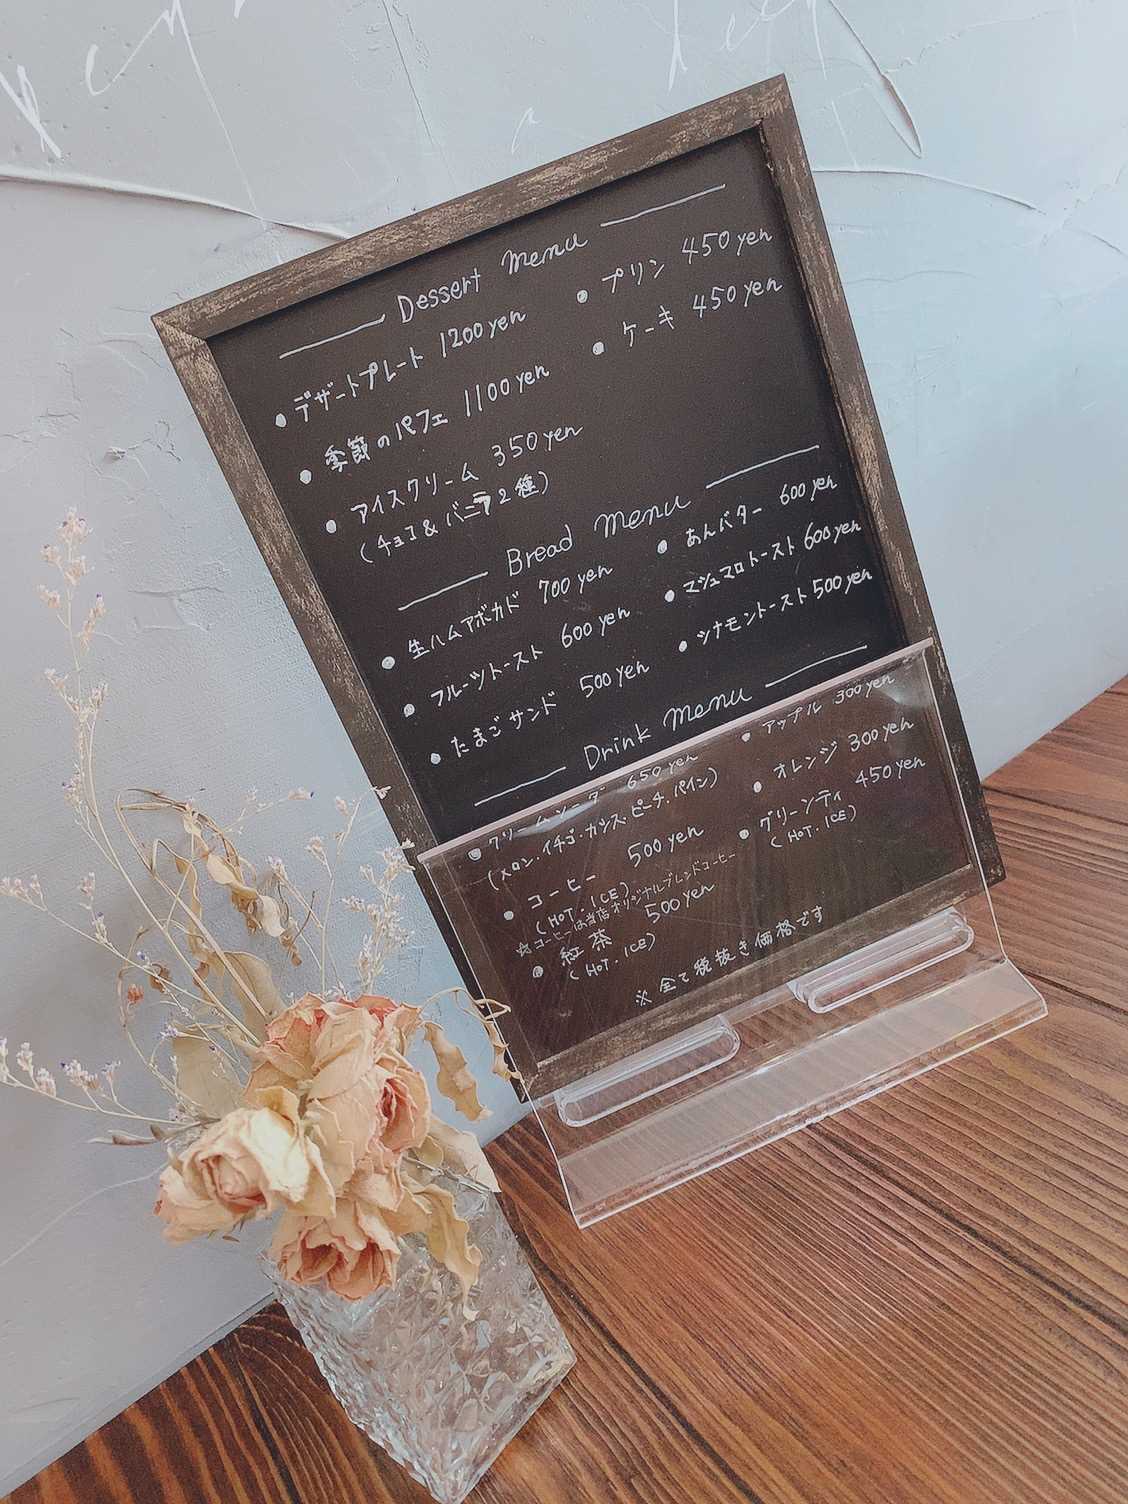 Dessert Menu
• デザートプレート 1200 yen
• 季節のパフェ 1100 yen
• アイスクリーム 350 yen
(チョコ & バニラ 2種)
• プリン 450 yen
• ケーキ 450 yen
Bread Menu
• 生ハムアボカド 700 yen
• フルーツトースト 600 yen
• たまごサンド 500 yen
• あんバター 600 yen
• マシュマロトースト 600 yen
• シナモントースト 500 yen
Drink Menu
• クリームソーダ 650 yen
(メロン・イチゴ・カシス・ピーチ・パイン)
• コーヒー 500 yen
(HOT・ICE)
☆コーヒーは当店オリジナルブレンドコーヒー
• 紅茶 500 yen
(HOT・ICE)
• アップル 300 yen
• オレンジ 300 yen
• グリーンティ 450 yen
(HOT・ICE)
※ 全て税抜き価格です